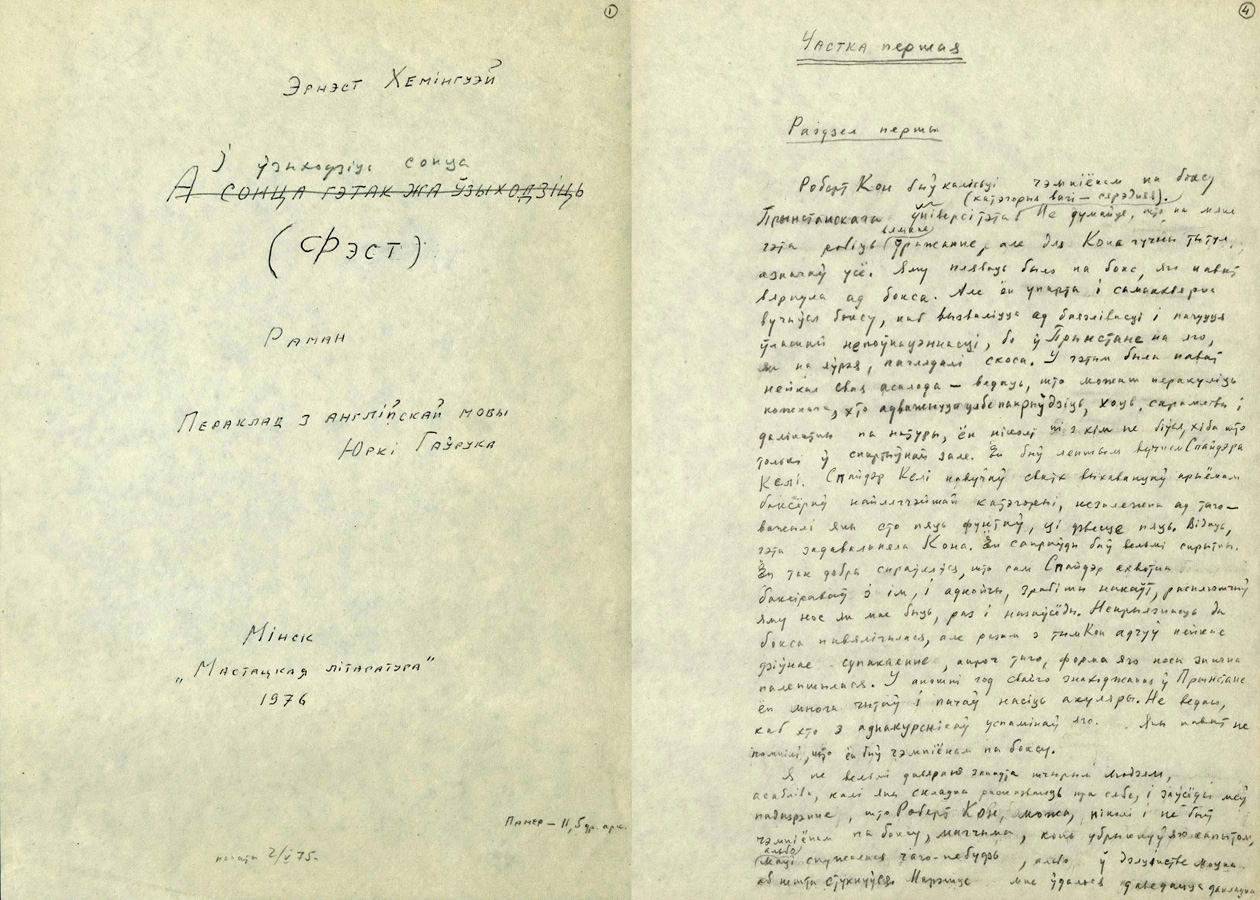 1
Эрнэст Хемінгуэй
І ўзыходзіць сонца
А сонца гэтак жа ўзыходзіць
(Фэст)
Раман
Пераклад з англійскай мовы
Юркі Гаўрука
Мінск
„Мастацкая літаратура"
1976
Памер – 11,5 др. арк.
2/V 75
4
Частка першая
Раздзел першы
Роберт Кон быў калісьці чэмпіёнам па боксу
(катэгорыя вагі – сярэдняя).
Прынстанскага ўніверсітэта. Не думайце, што на мяне
гэта робіць уражанне, але для Кона гучны тытул
азначаў усё. Яму пляваць было на бокс, яго нават
вярнула ад бокса. Але ён упарта і самааддана
вучыўся боксу, каб вызваліцца ад баязлівасці і пачуцця
ўласнай непоўнацэннасці, бо ў Прынстане на яго,
як на яўрэя, паглядалі скоса. У гэтым была нават
нейкая свая асалода – ведаць, што можаш перакуліць
кожнага, хто адважыцца цябе пакрыўдзіць, хоць, сарамлівы і
далікатны па натуры, ён ніколі ні з кім не біўся, хіба што
толькі ў спартыўнай зале. Ён быў лепшым вучнем Спайдэра
Келі. Спайдэр Келі навучаў сваіх выхаванцаў прыёмам
баксёраў найлягчэйшай катэгорыі, незалежна ад таго –
важылі яны сто пяць фунтаў, ці дзвесце пяць. Відаць,
гэта задавальняла Кона. Ён сапраўды быў вельмі спрытны.
Ён так добра спраўляўся, што сам Спайдэр ахвотна
баксіраваў з ім, і аднойчы, зрабіўшы накаўт, расплюшчыў
яму нос як мае быць, раз і назаўсёды. Непрыязнасць да
бокса павялічылася, але разам з тым Кон адчуў нейкае
дзіўнае супакаенне, апроч таго, форма яго носа значна
палепшылася. У апошні год свайго знаходжання ў Прынстане
ён многа чытаў і пачаў насіць акуляры. Не ведаю,
каб хто з аднакурснікаў успамінаў яго. Яны нават не
помнілі, што ён быў чэмпіёнам па боксу.
Я не вельмі давяраю занадта шчырым людзям,
асабліва, калі яны складна расказваюць пра сябе, і заўсёды меў
падазрэнне, што Роберт Кон, можа, ніколі і не быў
чэмпіёнам па боксу, магчыма, конь убрыкнуў яго капытом,
альбо
маці спужалася чаго-небудзь, альбо ў дзяцінстве моцна
аб нешта стукнуўся. Нарэшце мне ўдалося даведацца дакладна